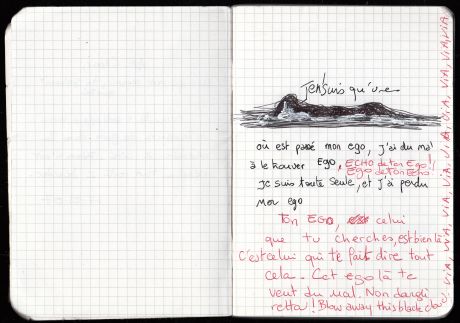 Je n'suis qu'une
où est passé mon ego, j'ai du mal
à le trouver Ego, ECHO de ton Ego!!
EGO de TON Echo
je suis toute seule, et j'ai perdu
mon ego
Ton EGO, celui
que tu cherches, est bien là
c'est celui qui te fait dire tout
cela. Cet ego là te
veut du mal. Non dargli
retta! Blow away this black cloud.
VIA, VIA, VIA, VIA, VIA, VIA, VIA, VIA, VIA